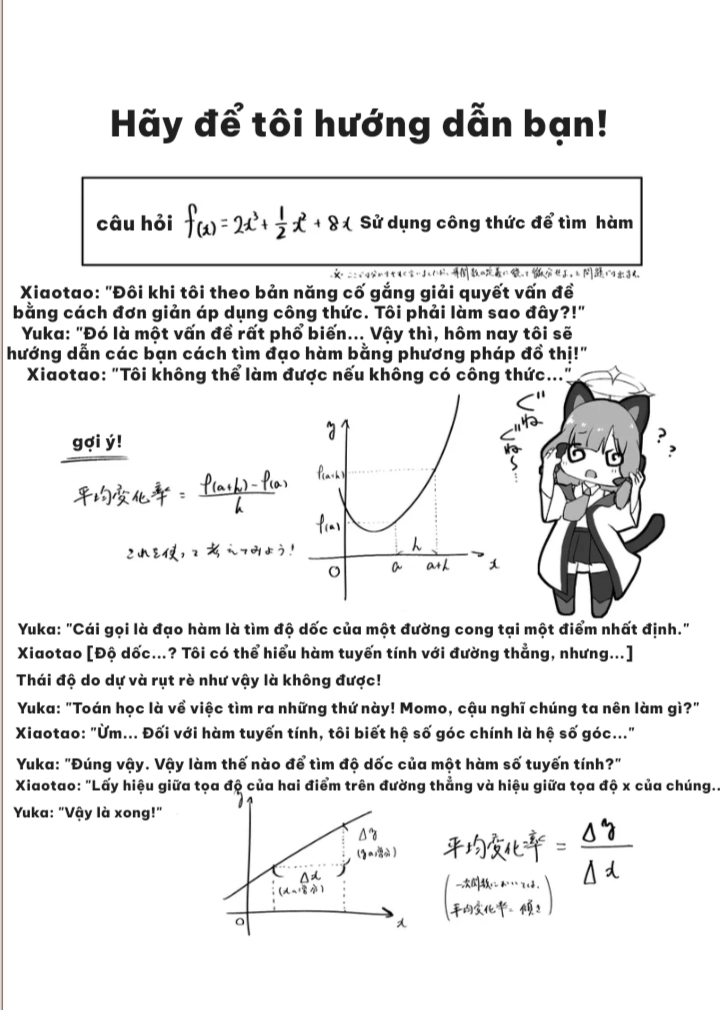 Hãy để tôi hướng dẫn bạn!
câu hỏi f(x) = 2x³ + 1/2 x² + 8x Sử dụng công thức để tìm hàm
Xiaotao: "Đôi khi tôi theo bản năng cố gắng giải quyết vấn đề
bằng cách đơn giản áp dụng công thức. Tôi phải làm sao đây?!"
Yuka: "Đó là một vấn đề rất phổ biến... Vậy thì, hôm nay tôi sẽ
hướng dẫn các bạn cách tìm đạo hàm bằng phương pháp đồ thị!"
Xiaotao: "Tôi không thể làm được nếu không có công thức..."
gợi ý!
平均変化率 = f(a+h) - f(a) / h
これを使って考えてみよう!
y
f(a+h)
f(a)
h
O a a+h x
ぐぬ
ぐぬ〜
? ?
Yuka: "Cái gọi là đạo hàm là tìm độ dốc của một đường cong tại một điểm nhất định."
Xiaotao [Độ dốc...? Tôi có thể hiểu hàm tuyến tính với đường thẳng, nhưng...]
Thái độ do dự và rụt rè như vậy là không được!
Yuka: "Toán học là về việc tìm ra những thứ này! Momo, cậu nghĩ chúng ta nên làm gì?"
Xiaotao: "Ừm... Đối với hàm tuyến tính, tôi biết hệ số góc chính là hệ số góc..."
Yuka: "Đúng vậy. Vậy làm thế nào để tìm độ dốc của một hàm số tuyến tính?"
Xiaotao: "Lấy hiệu giữa tọa độ của hai điểm trên đường thẳng và hiệu giữa tọa độ x của chúng..
Yuka: "Vậy là xong!"
y
Δy
(yの増分)
Δx
(xの増分)
O x
平均変化率 = Δy / Δx
(一次関数においては、
平均変化率 = 傾き)